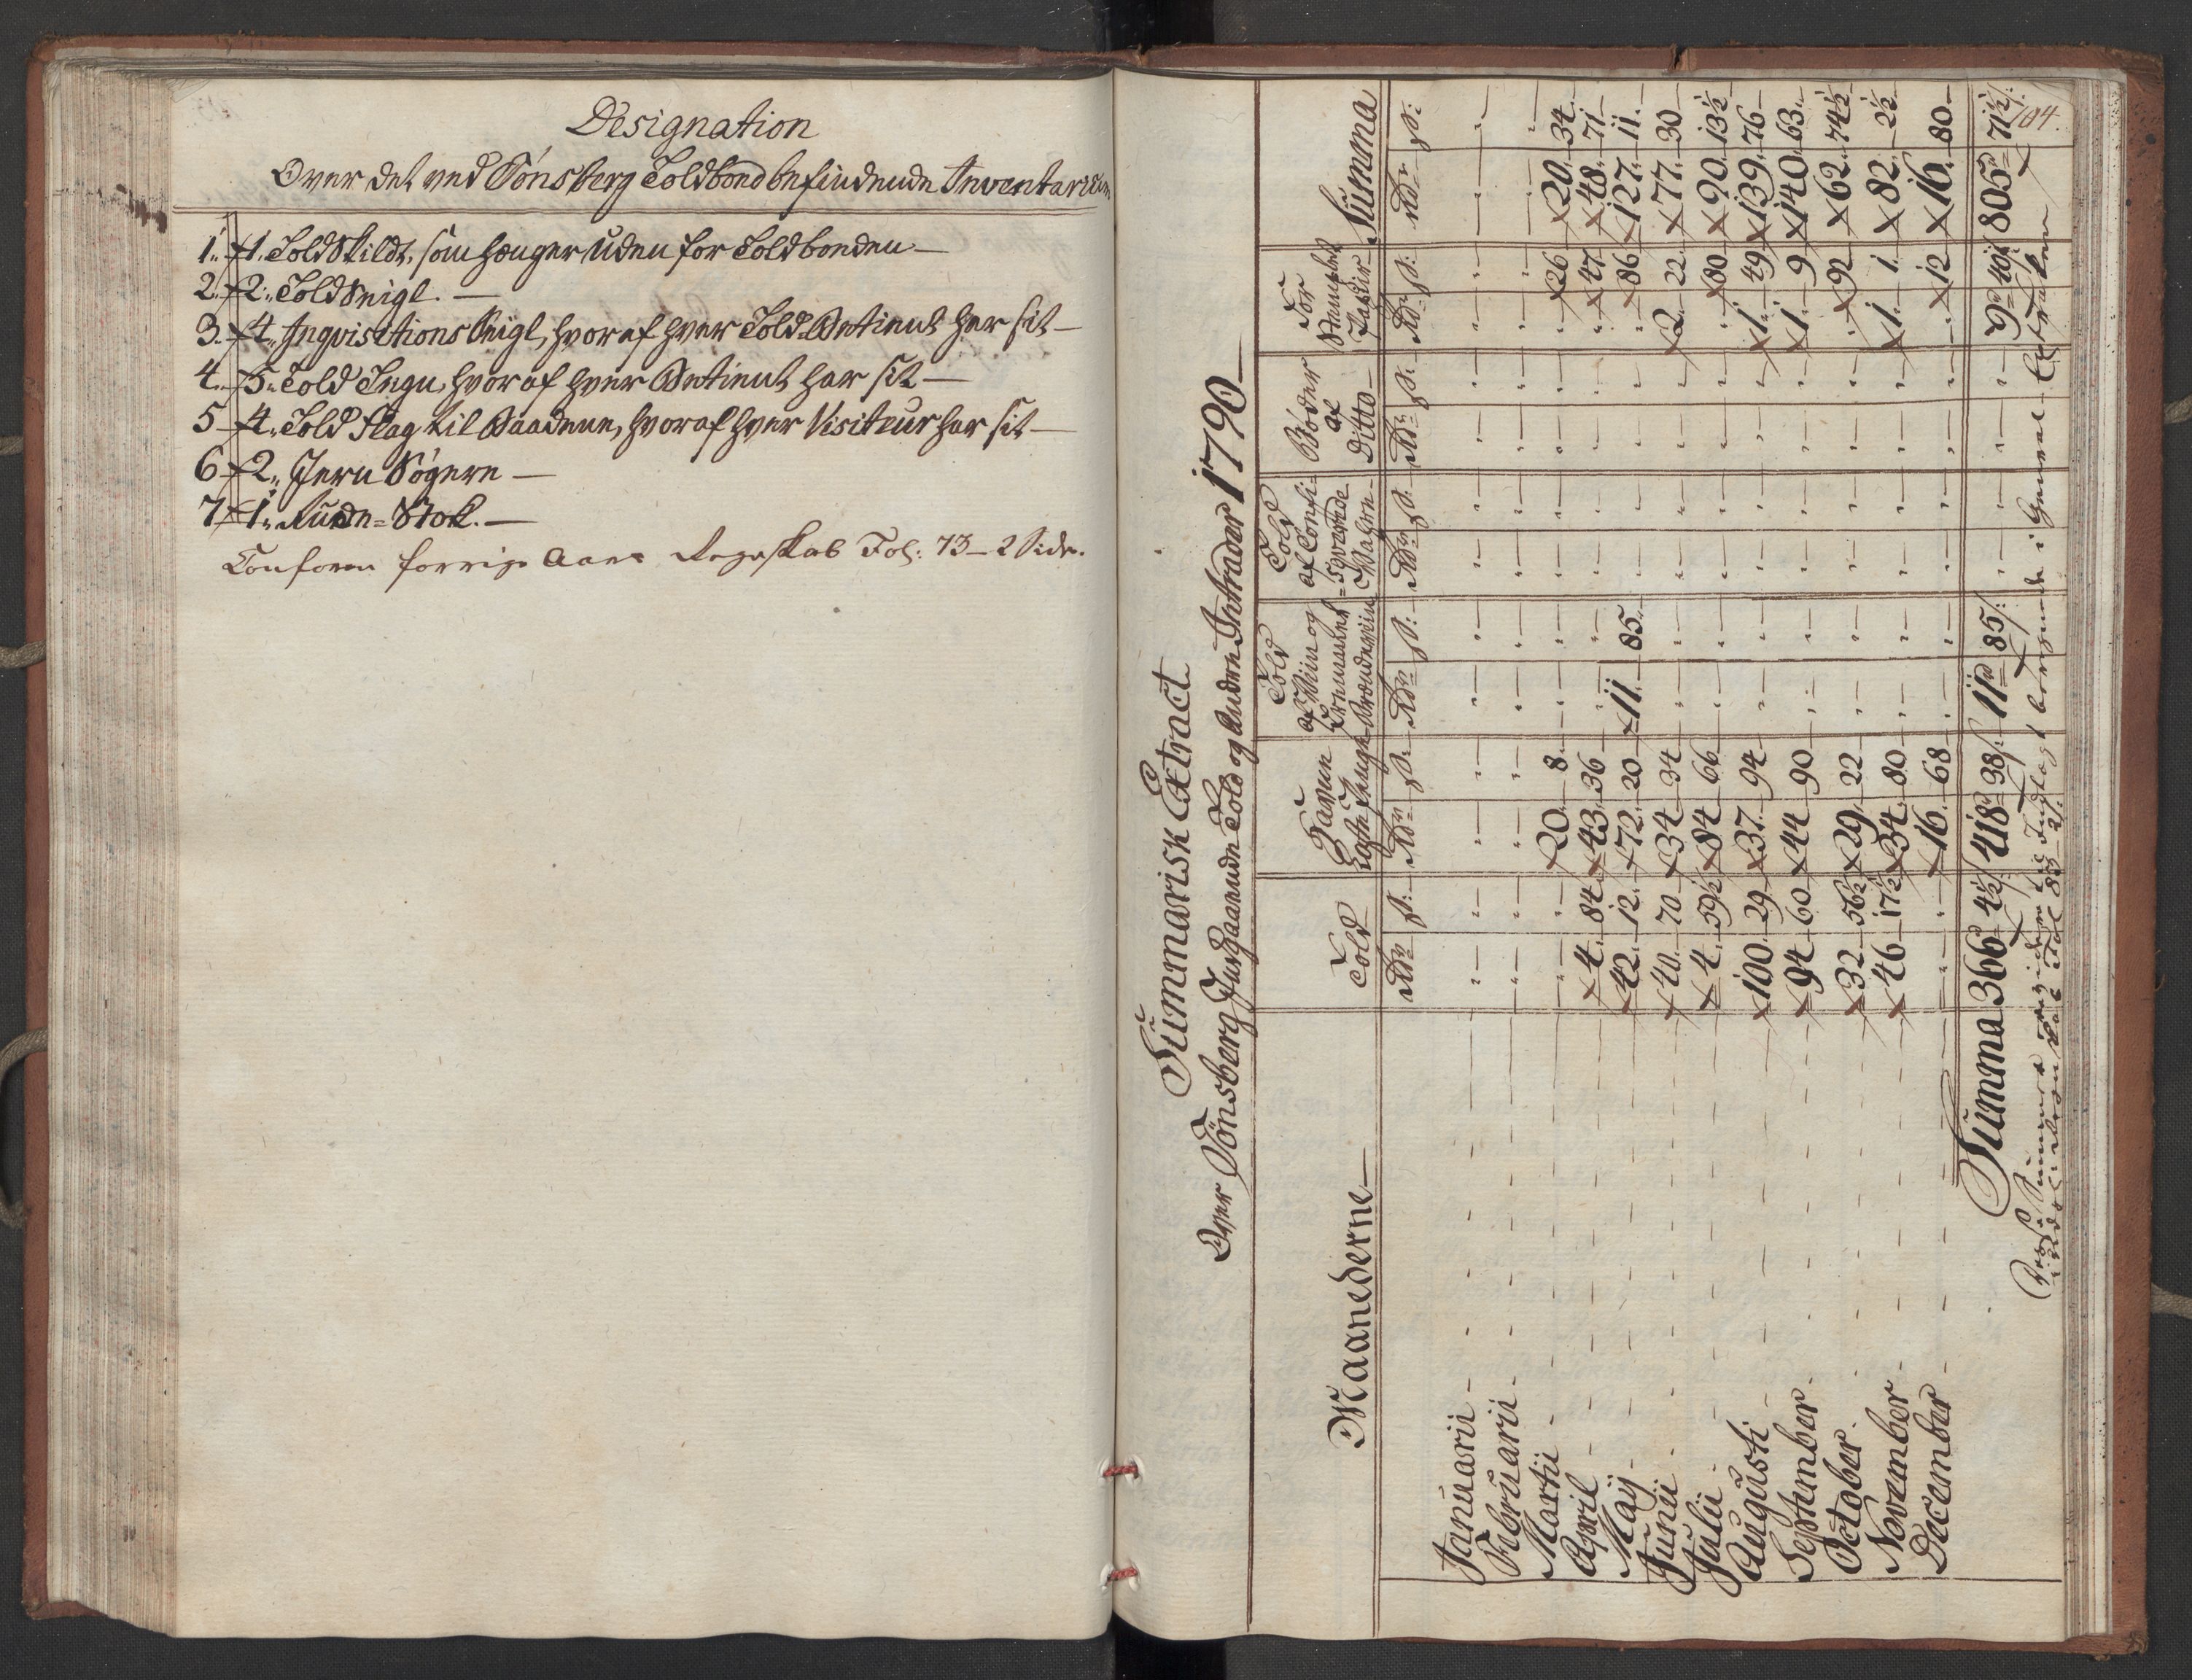 Designation
Over det ved Tönsberg Toldbond befindende Inventarium
1. 1. Told Skildt, som hænger uden for Toldboden
2. 2. Told Seigl.
3. 4. Inqvisitions Seigl, hvoraf hver Told Betient har sit
4. 5. Told Tegn, hvoraf hver Betient har sit
5 4. Told Flag til Baadene, hvoraf hver Visiteur har sit
6 2. Jern Søgere
7 1. Rude=Stok.
Conform forrige Aars Regnskab Fol: 73 - 2 Side.
Summarisk Extract
Over Tönsberg Indgaaende Told og Andere Intrader 1790
Maanederne Told Havne Told af Viin og Told af Confi= Bøder For Summa
Laste Penge Fremmedet sqverede af Stemplet
Brændeviin Wahre Ditto Papiir
Rdr ß: Rdr ß: Rdr ß: Rdr ß: Rdr ß: Rdr ß: Rdr ß:
Januarii
Februarii
Martii 20. 8. 26 20. 34.
April 4. 84 43. 36 47. 48. 71
Maÿ 42. 12. 72. 20 11. 85. 86 127. 11.
Junii 40. 70 34 34 2. 22. 77. 30
Julii 4. 59½ 84 66 80 90. 13½
Augusti 100. 29 37. 94 1. 49 139. 76
September 94 60 44 90 1. 9 140. 63.
October 32. 56½ 29. 22 92 62. 74½
November 46 17½ 34. 80 1. 1. 82. 2½
December 16. 68 12 16. 80
Summa 366 4½ 418 38 11 85 9 40 805 71½
104.